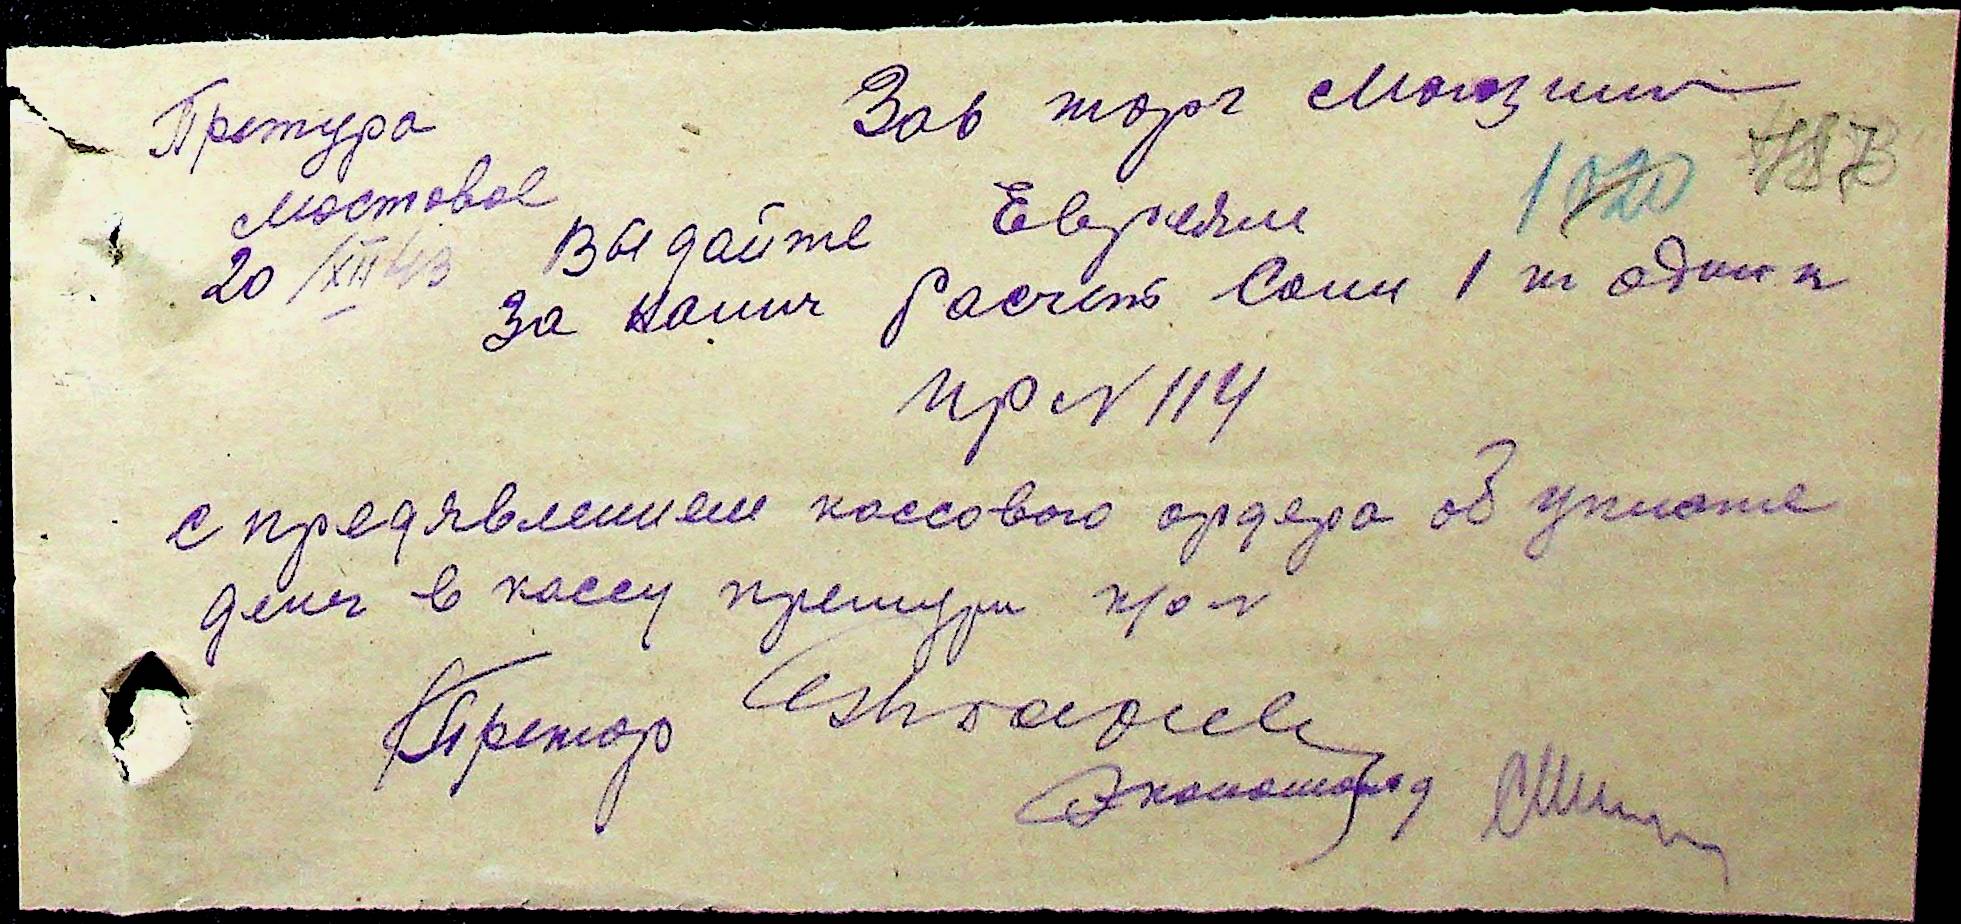 Претура
Мостовое
20/XII 43
Зав торг Магазином
Выдайте Евреям
За налич Расчет Соли 1 кг один к
пр N 114
с предявлением кассового ордера об уплате
денег в кассу претури
Претор
Экономотд